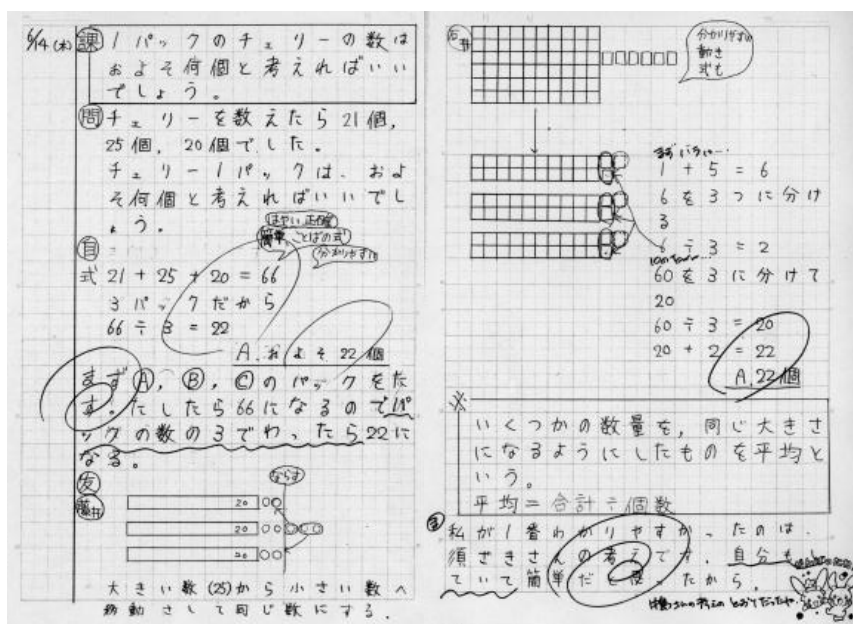 6/14(木)
課 1パックのチェリーの数は
およそ何個と考えればいい
でしょう。
問 チェリーを数えたら21個,
25個, 20個でした。
チェリー1パックは、およ
そ何個と考えればいいでし
ょう。
はやい 正確
簡単 ことばの式
分かりやすい
自
式 21+25+20=66
3パックだから
66÷3=22
A. およそ22個
まずⒶ, Ⓑ, Ⓒのパックをた
す。たしたら66になるのでパ
ックの数の3でわったら22に
なる。
友
ならす
20
20
20
大きい数(25)から小さい数へ
移動さして同じ数にする.
分かりやすい
動き
式も
まず バラ
1+5=6
6を3つに分け
る
6÷3=2
60を3に分けて
20
60÷3=20
20+2=22
A.22個
※
いくつかの数量を,同じ大きさ
になるようにしたものを平均と
いう。
平均=合計÷個数
私が1番わかりやすかったのは、
須ざきさんの考えです。自分も
ていて簡単だ ったから。
さんの考えの とおりだったね。